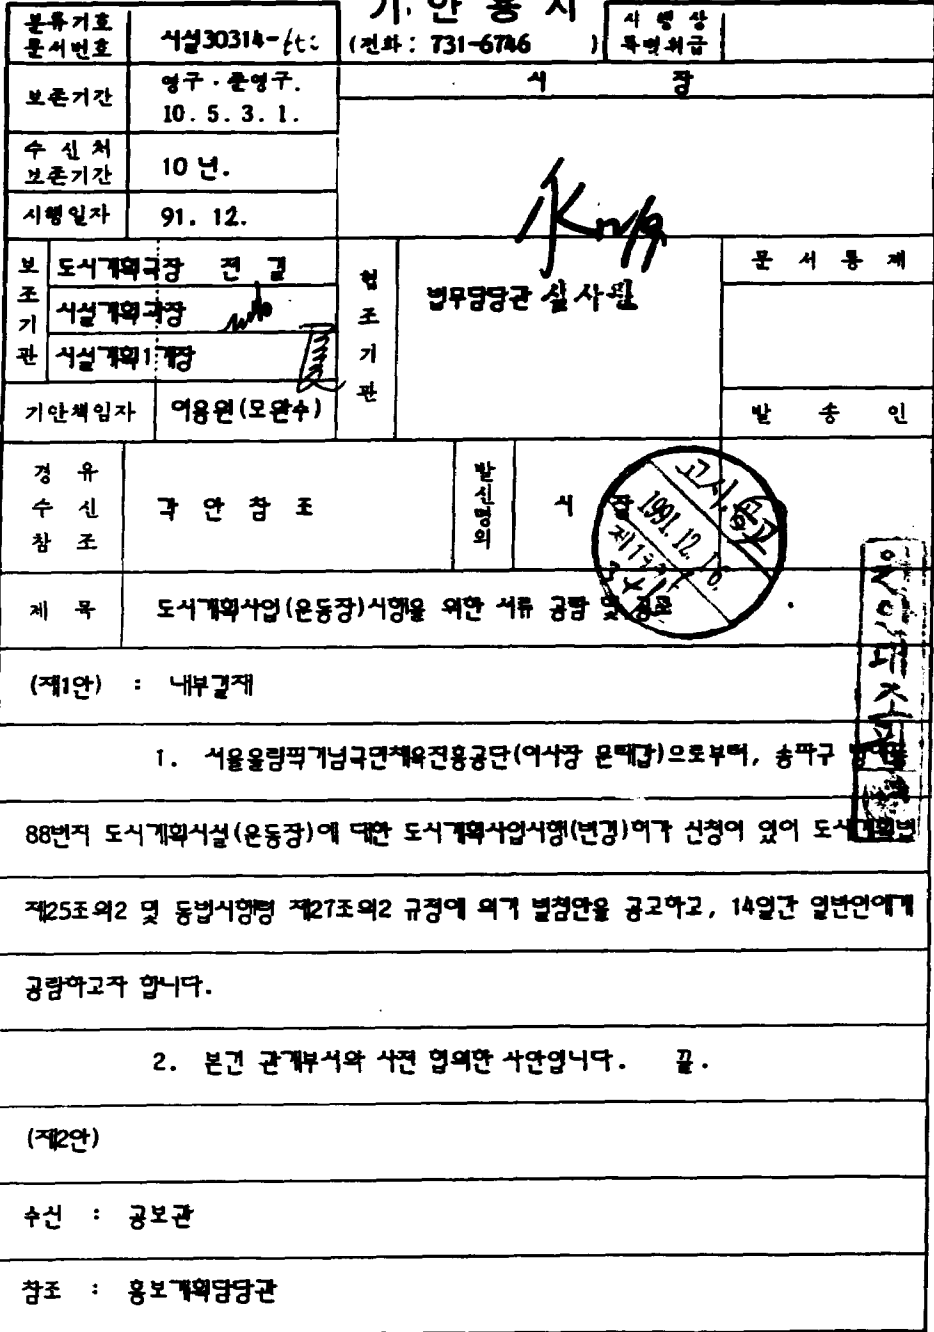 기 안 용 지
분류기호
문서번호
시설30314-
(전화: 731-6746 )
시 행 상
특별취급
보존기간
영구·준영구.
10. 5. 3. 1.
시 장
수 신 처
보존기간
10 년.
시행일자
91. 12.
보조기관
도시계획국장 전 결
시설계획과장
시설계획1계장
협조기관
법무담당관 심사필
문 서 통 제
기안책임자
이용원(모완수)
발 송 인
경 유
수 신
참 조
각 안 참 조
발신명의
시 장
고시.공고
1991. 12. 16.
제 목
도시계획사업(운동장)시행을 위한 서류 공람 및 공고
(제1안) : 내부결재
1. 서울올림픽기념국민체육진흥공단(이사장 문태갑)으로부터, 송파구
88번지 도시계획시설(운동장)에 대한 도시계획사업시행(변경)허가 신청이 있어 도시계획법
제25조의2 및 동법시행령 제27조의2 규정에 의거 별첨안을 공고하고, 14일간 일반인에게
공람하고자 합니다.
2. 본건 관계부서와 사전 협의한 사안입니다. 끝.
(제2안)
수신 : 공보관
참조 : 홍보계획담당관